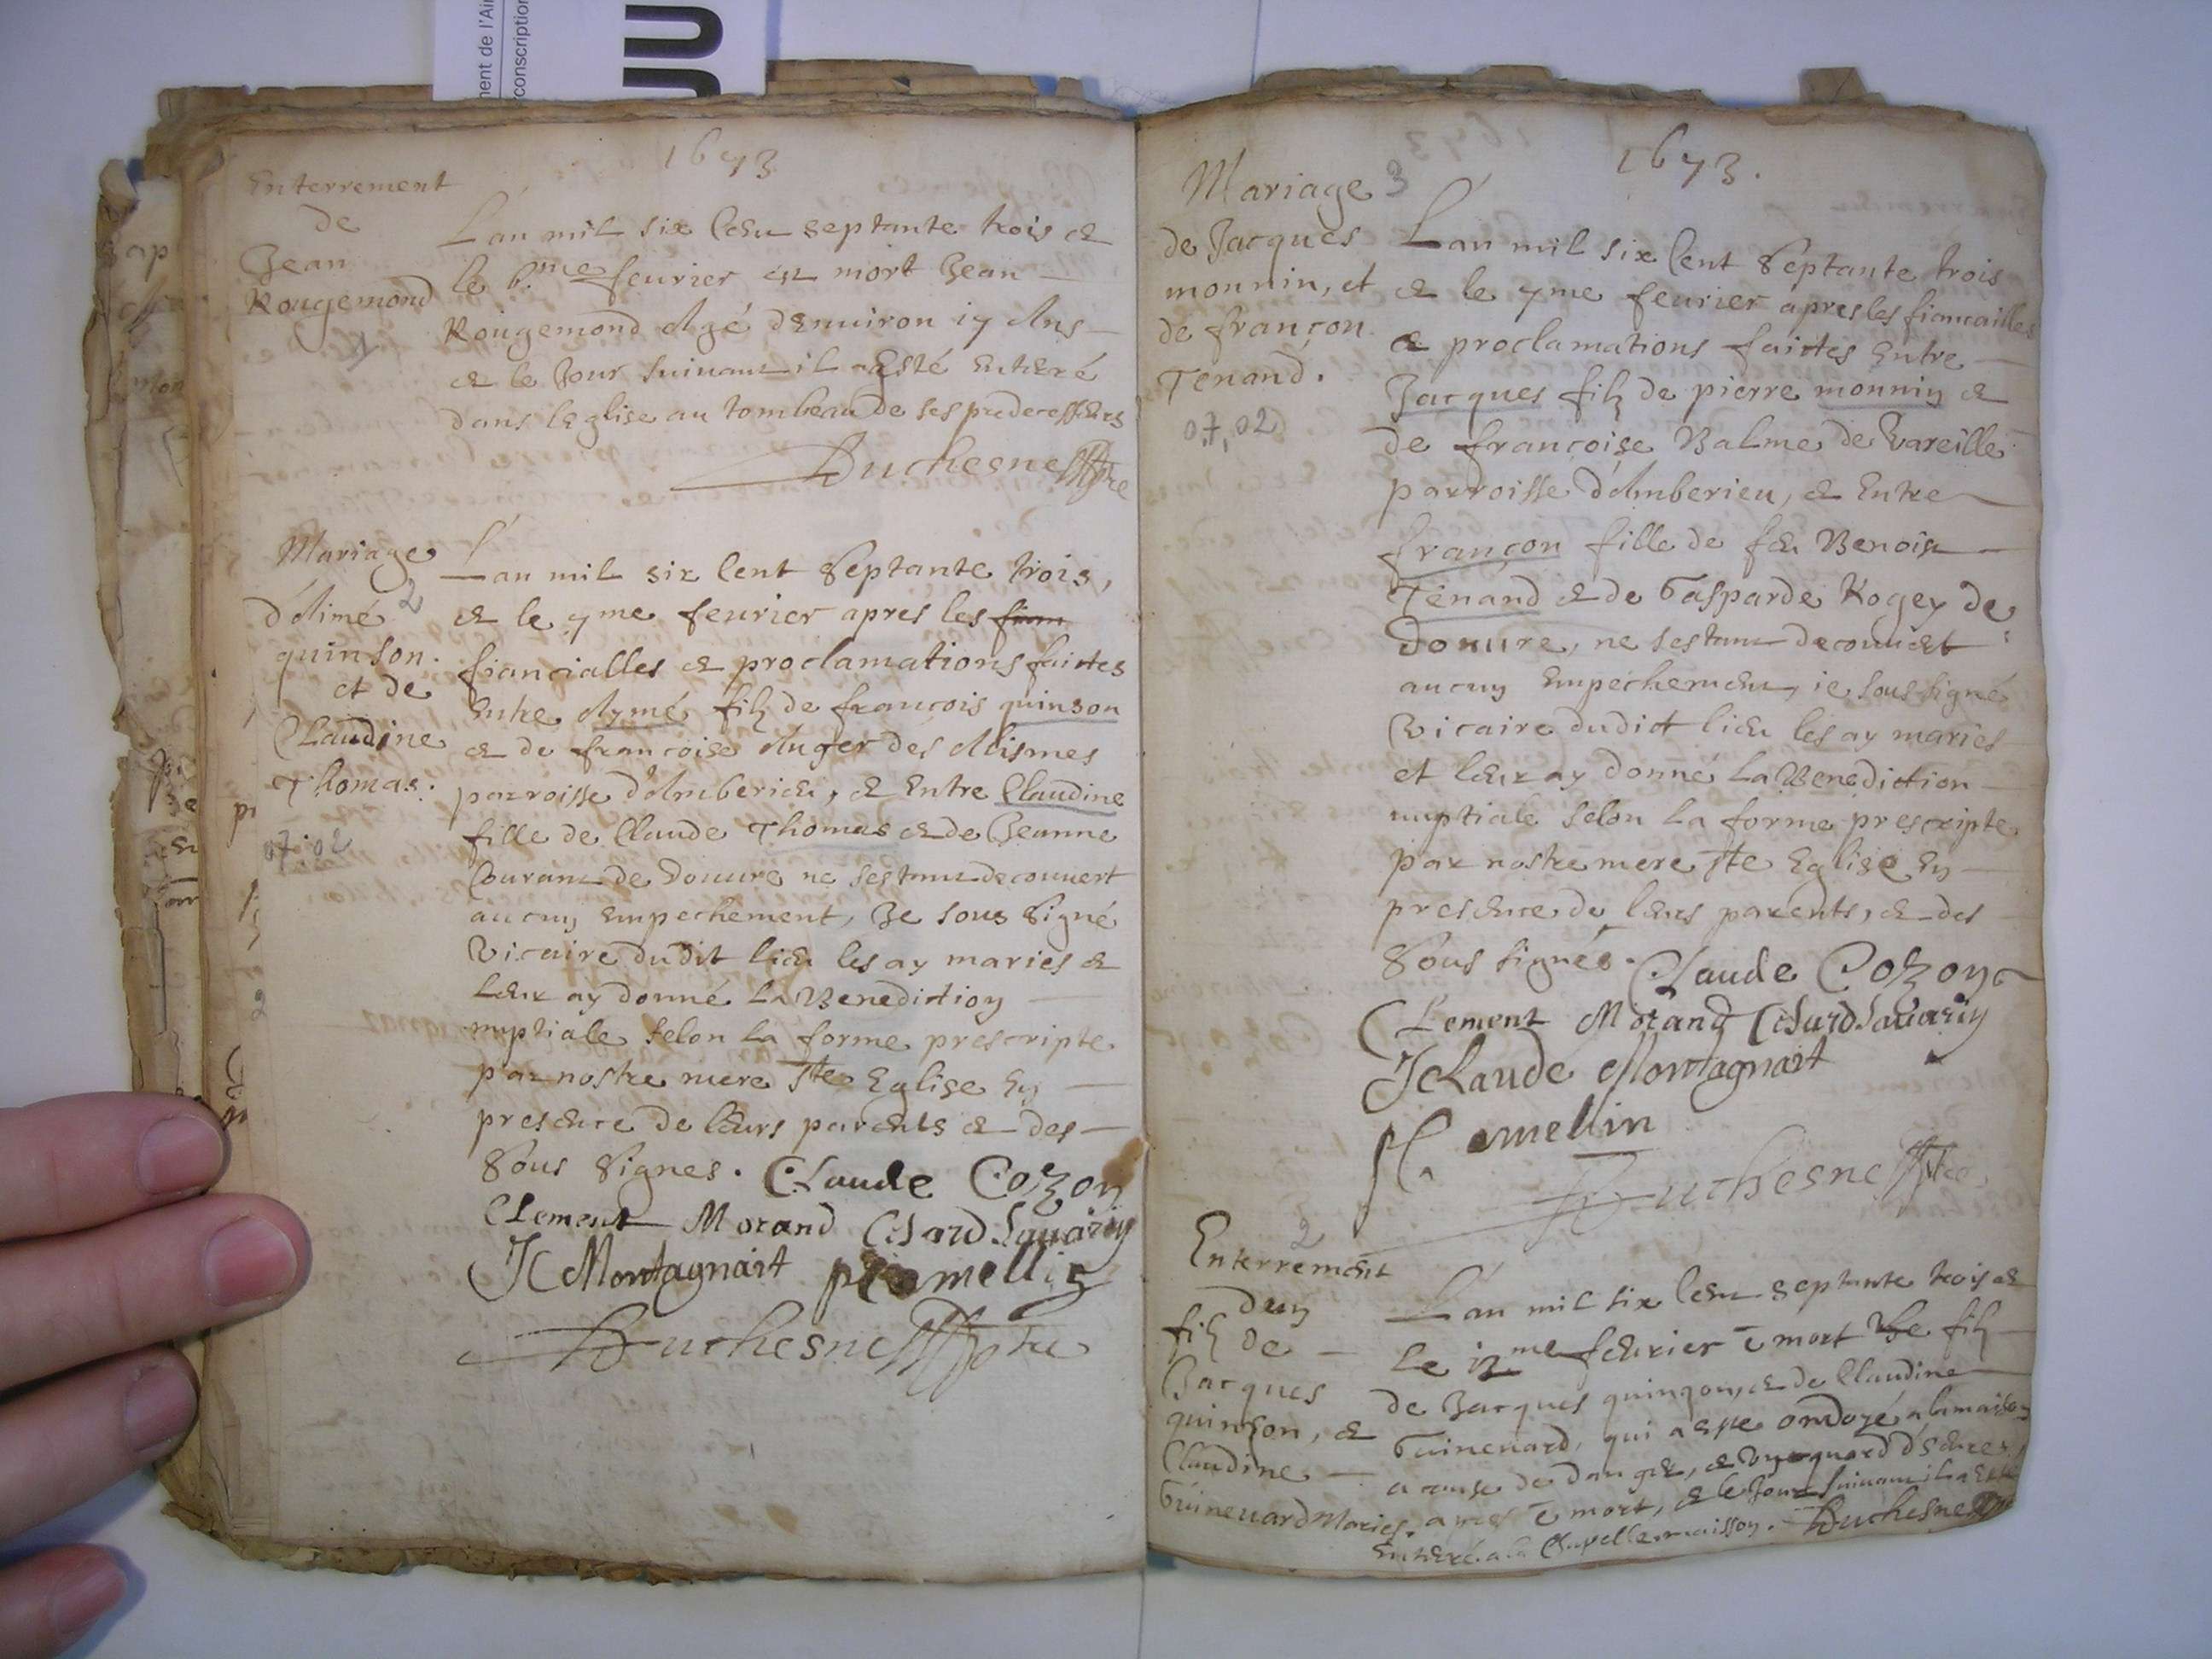 ment de l'Ain
conscription
JU
1673
Enterrement
de
Jean
Rougemond
1
L'an mil six Cent septante trois &
le 6.me feurier est mort Jean
Rougemond Agé d'Enuiron 17 Ans
& le Jour suiuant il a Esté Enterré
dans l'Eglise au tombeau de ses predecesseurs
Duchesne ptre
Mariage
2
d'Aimé
quinson.
et de
Claudine
Thomas.
07.02
L'an mil six Cent Septante trois,
& le 7me feurier apres les fian
fiancialles & proclamations faictes
Entre Aymé filz de francois quinson
& de francoise Auger des Alismes
parroisse d'Amberieu, & Entre Claudine
fille de Claude Thomas & de Jeanne
Courant de Douure ne s'estant decouuert
aucun Empechement, Je sous Signé
Vicaire dudit lieu les ay mariés &
Leur ay donné La Benediction
nuptiale selon La forme prescripte
par nostre mere Ste Eglise En
presence de leurs parents & des
Sous Signes. Claude Cozon
Clement Morand Savarin
JC Montagnait amellin
Duchesne ptre
1673.
Mariage 3
de Jacques
monnin, et
de françon
Tenand.
07,02
L'an mil six Cent Septante trois
& le 7me feurier apres les fiancailles
& proclamations faictes Entre
Jacques filz de pierre monnin &
de francoise Balme de Vareille
parroisse d'Amberieu, & Entre
françon fille de feu Benoist
Tenand & de Gasparde Rogey de
Douure, ne s'estant decouuert
aucun Empechement, ie sous signé
Vicaire dudict lieu les ay mariés
et leur ay donné La Benediction
nuptiale selon La forme prescripte
par nostre mere Ste Eglise En
presence de leurs parents, & des
Sous signés. Claude Cozon
Clement Morand Savarin
JClaude Montagnait
amellin
Duchesne ptre
2
Enterrement
d'un
filz de
Jacques
quinson, &
Claudine
Guineuard Mariés.
L'an mil six Cent septante trois &
Le 12me feurier ē mort Vn filz
de Jacques quinson, & de Claudine
Guineuard, qui a esté ondoyé a la maison
a cause de danger, & Vn quard d'Eure
apres ē mort, & le Jour suiuant il a Esté
Enterré a la Chapelle maisson. Duchesne